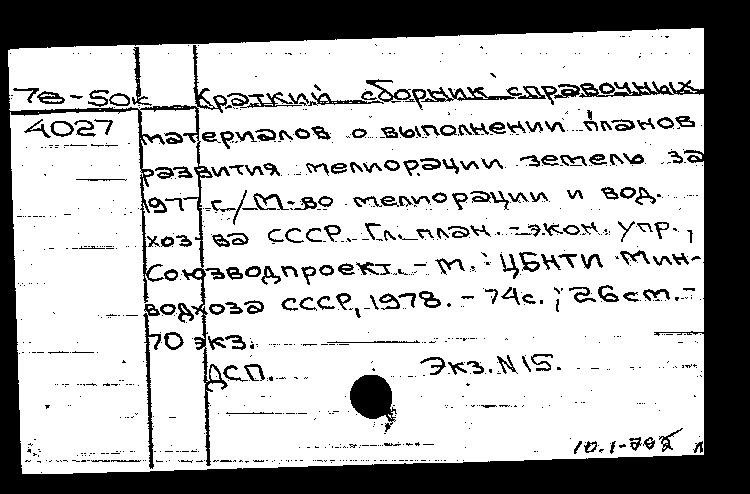 78-50к Краткий сборник справочных
4027 материалов о выполнении планов
развития мелиорации земель за
1977 г./М-во мелиорации и вод.
хоз-ва СССР. Гл. план.-экон. упр.,
Союзводпроект.-М.: ЦБНТИ Мин-
водхоза СССР, 1978.-74с.; 26см.-
70 экз.
ДСП. Экз.N15.